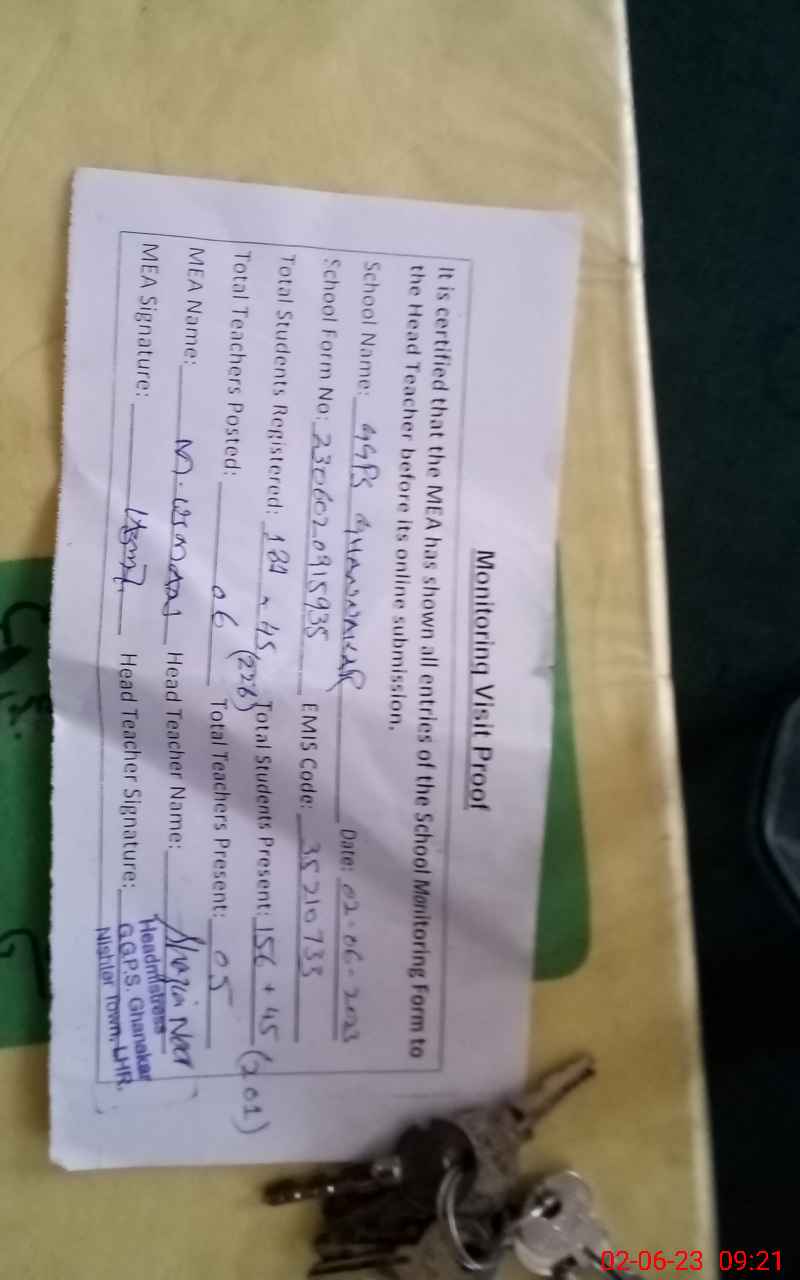 Monitoring Visit Proof
It is certified that the MEA has shown all entries of the School Monitoring Form to
the Head Teacher before its online submission.
School Name: GGPS GHANNAKAR Date: 02-06-2023
School Form No: 2306020915935 EMIS Code: 35210733
Total Students Registered: 45 (226) Total Students Present: 156 + 45 (201)
Total Teachers Posted: 06 Total Teachers Present: 05
MEA Name: M. USMAN Head Teacher Name:
MEA Signature: Head Teacher Signature:
Headmistress
G.G.P.S. Ghanakar
Nishter Town, LHR.
02-06-23 09:21